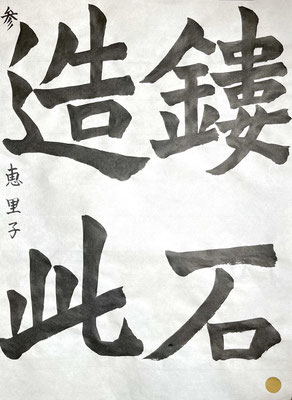 鏤石
造此
参 恵里子